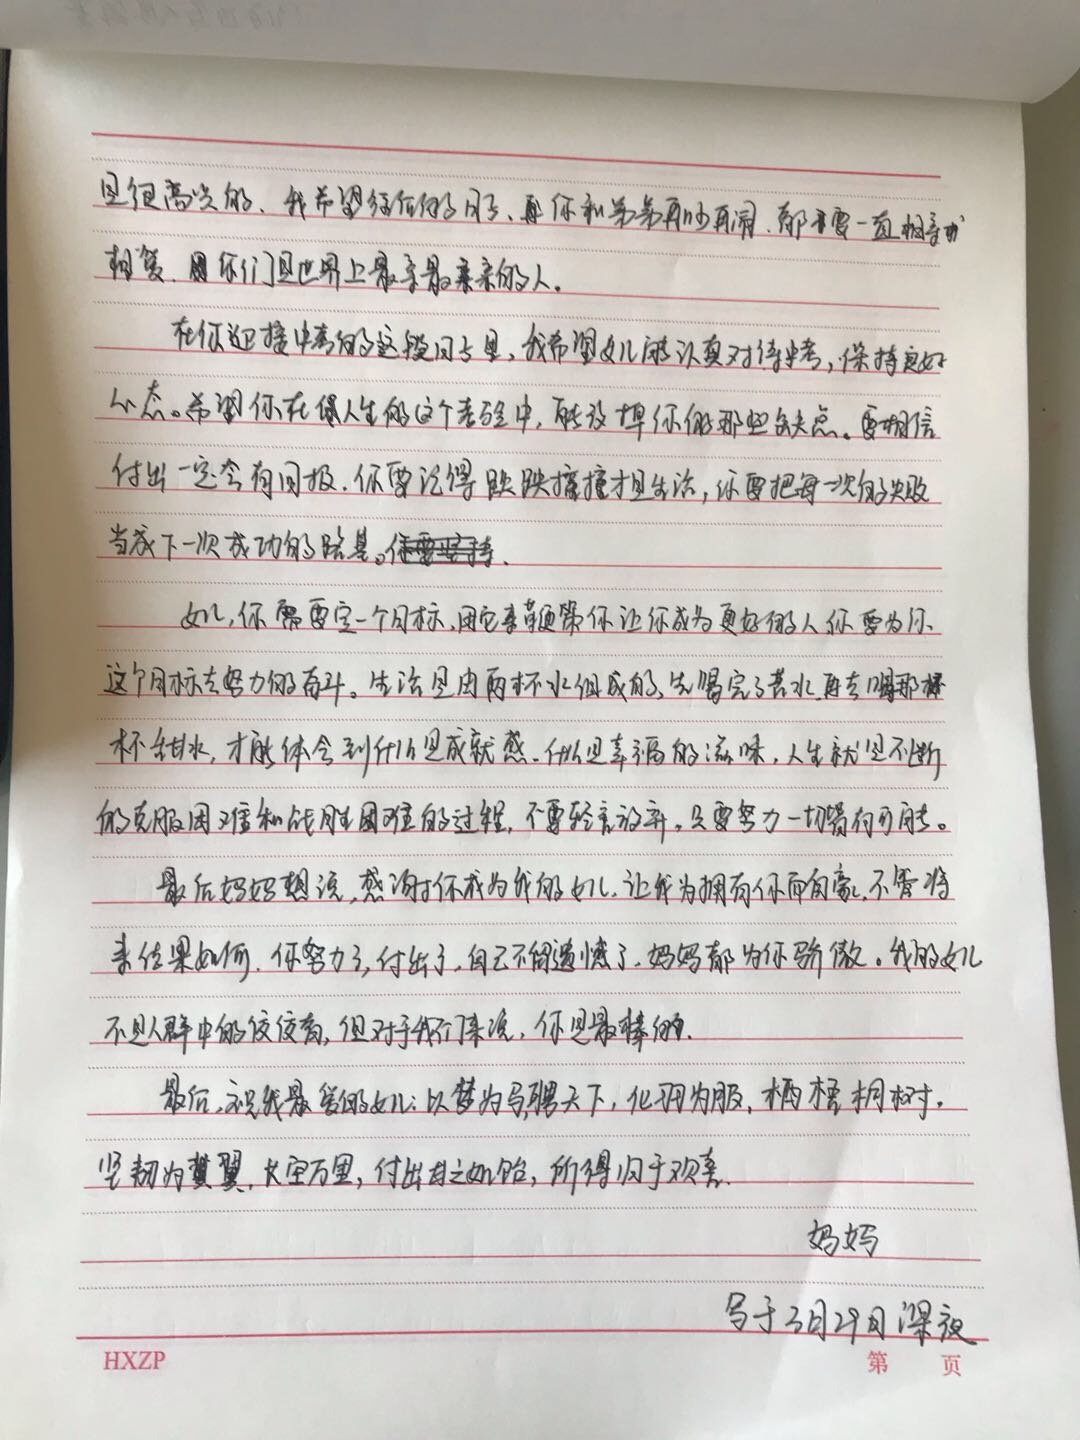 是很高兴的、我希望往后的日子、再你和弟弟再吵再闹、都要一直相亲
相爱、你们是世界上最亲最亲的人。
在你迎接中考的这段日子里，我希望女儿能认真对待中考，保持良好
心态。希望你在人生的这个考验中，能改掉你的那些缺点。要相信
付出一定会有回报、你要记得跌跌撞撞才是生活，你要把每一次的失败
当成下一次成功的路基。
女儿，你需要定一个目标，用它来鞭策你让你成为更好的人你要为你
这个目标去努力的奋斗。生活是由两杯水组成的，先喝完了苦水，再去喝那
杯甜水，才能体会到什么是成就感、什么是幸福的滋味，人生就是不断
的克服困难和战胜困难的过程，不要轻言放弃。只要努力一切皆有可能。
最后妈妈想说，感谢你成为我的女儿、让我为拥有你而自豪，不管将
来结果如何、你努力了，付出了，自己不留遗憾了、妈妈都为你骄傲。我的女儿
不是人群中的佼佼者，但对于我们来说，你是最棒的。
最后，祝我最爱的女儿：以梦为马，骋天下，化羽为服，栖梧桐树。
坚韧为翼、长空万里，付出甘之如饴，所得归于欢喜.
妈妈
写于3月29日深夜
HXZP
第 页